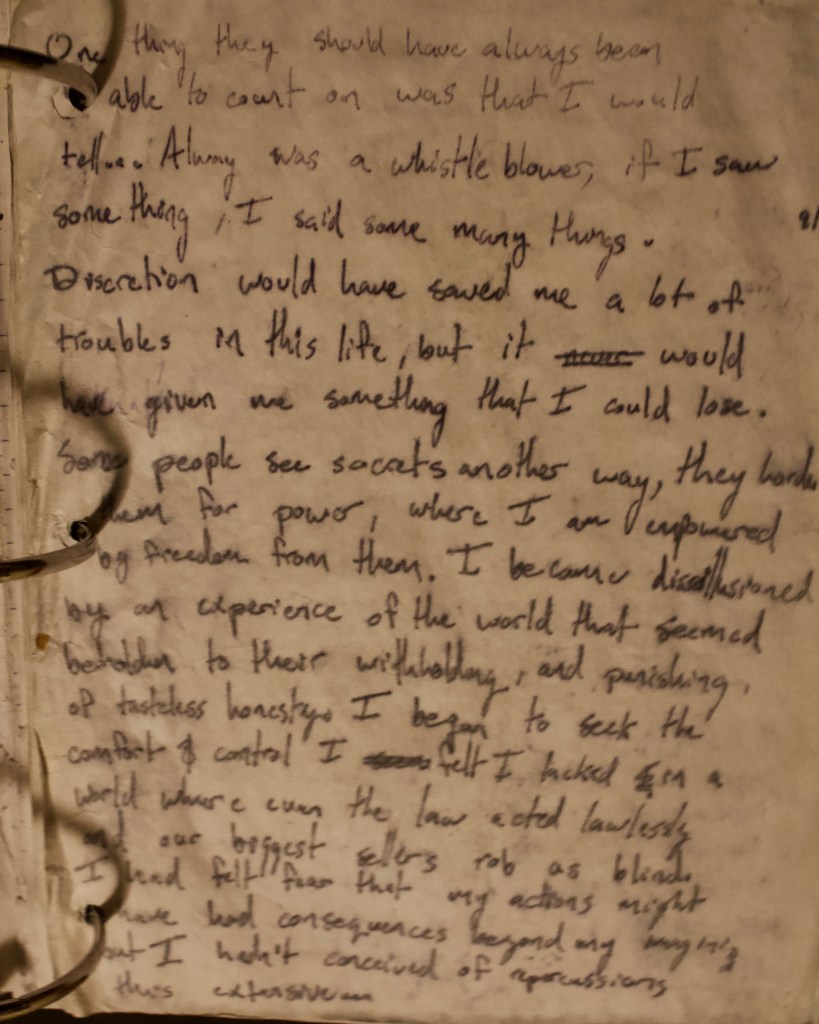 One thing they should have always been
able to count on was that I would
tell... Alway was a whistle blower, if I saw
something, I said some many things.
8/
Discretion would have saved me a lot of
troubles in this life, but it never would
have given me something that I could lose.
Some people see secrets another way, they
them for power, where I am empowered
by freedom from them. I became dissillusioned
by an experience of the world that seemed
beholden to their withholding, and punishing,
of tasteless honesty. I began to seek the
comfort & control I felt I lacked in a
world where even the law acted lawlessly
and our biggest sellers rob as blind.
I had felt fear that my actions might
have had consequences beyond my
but I hadn't conceived of repercussions
this extensive